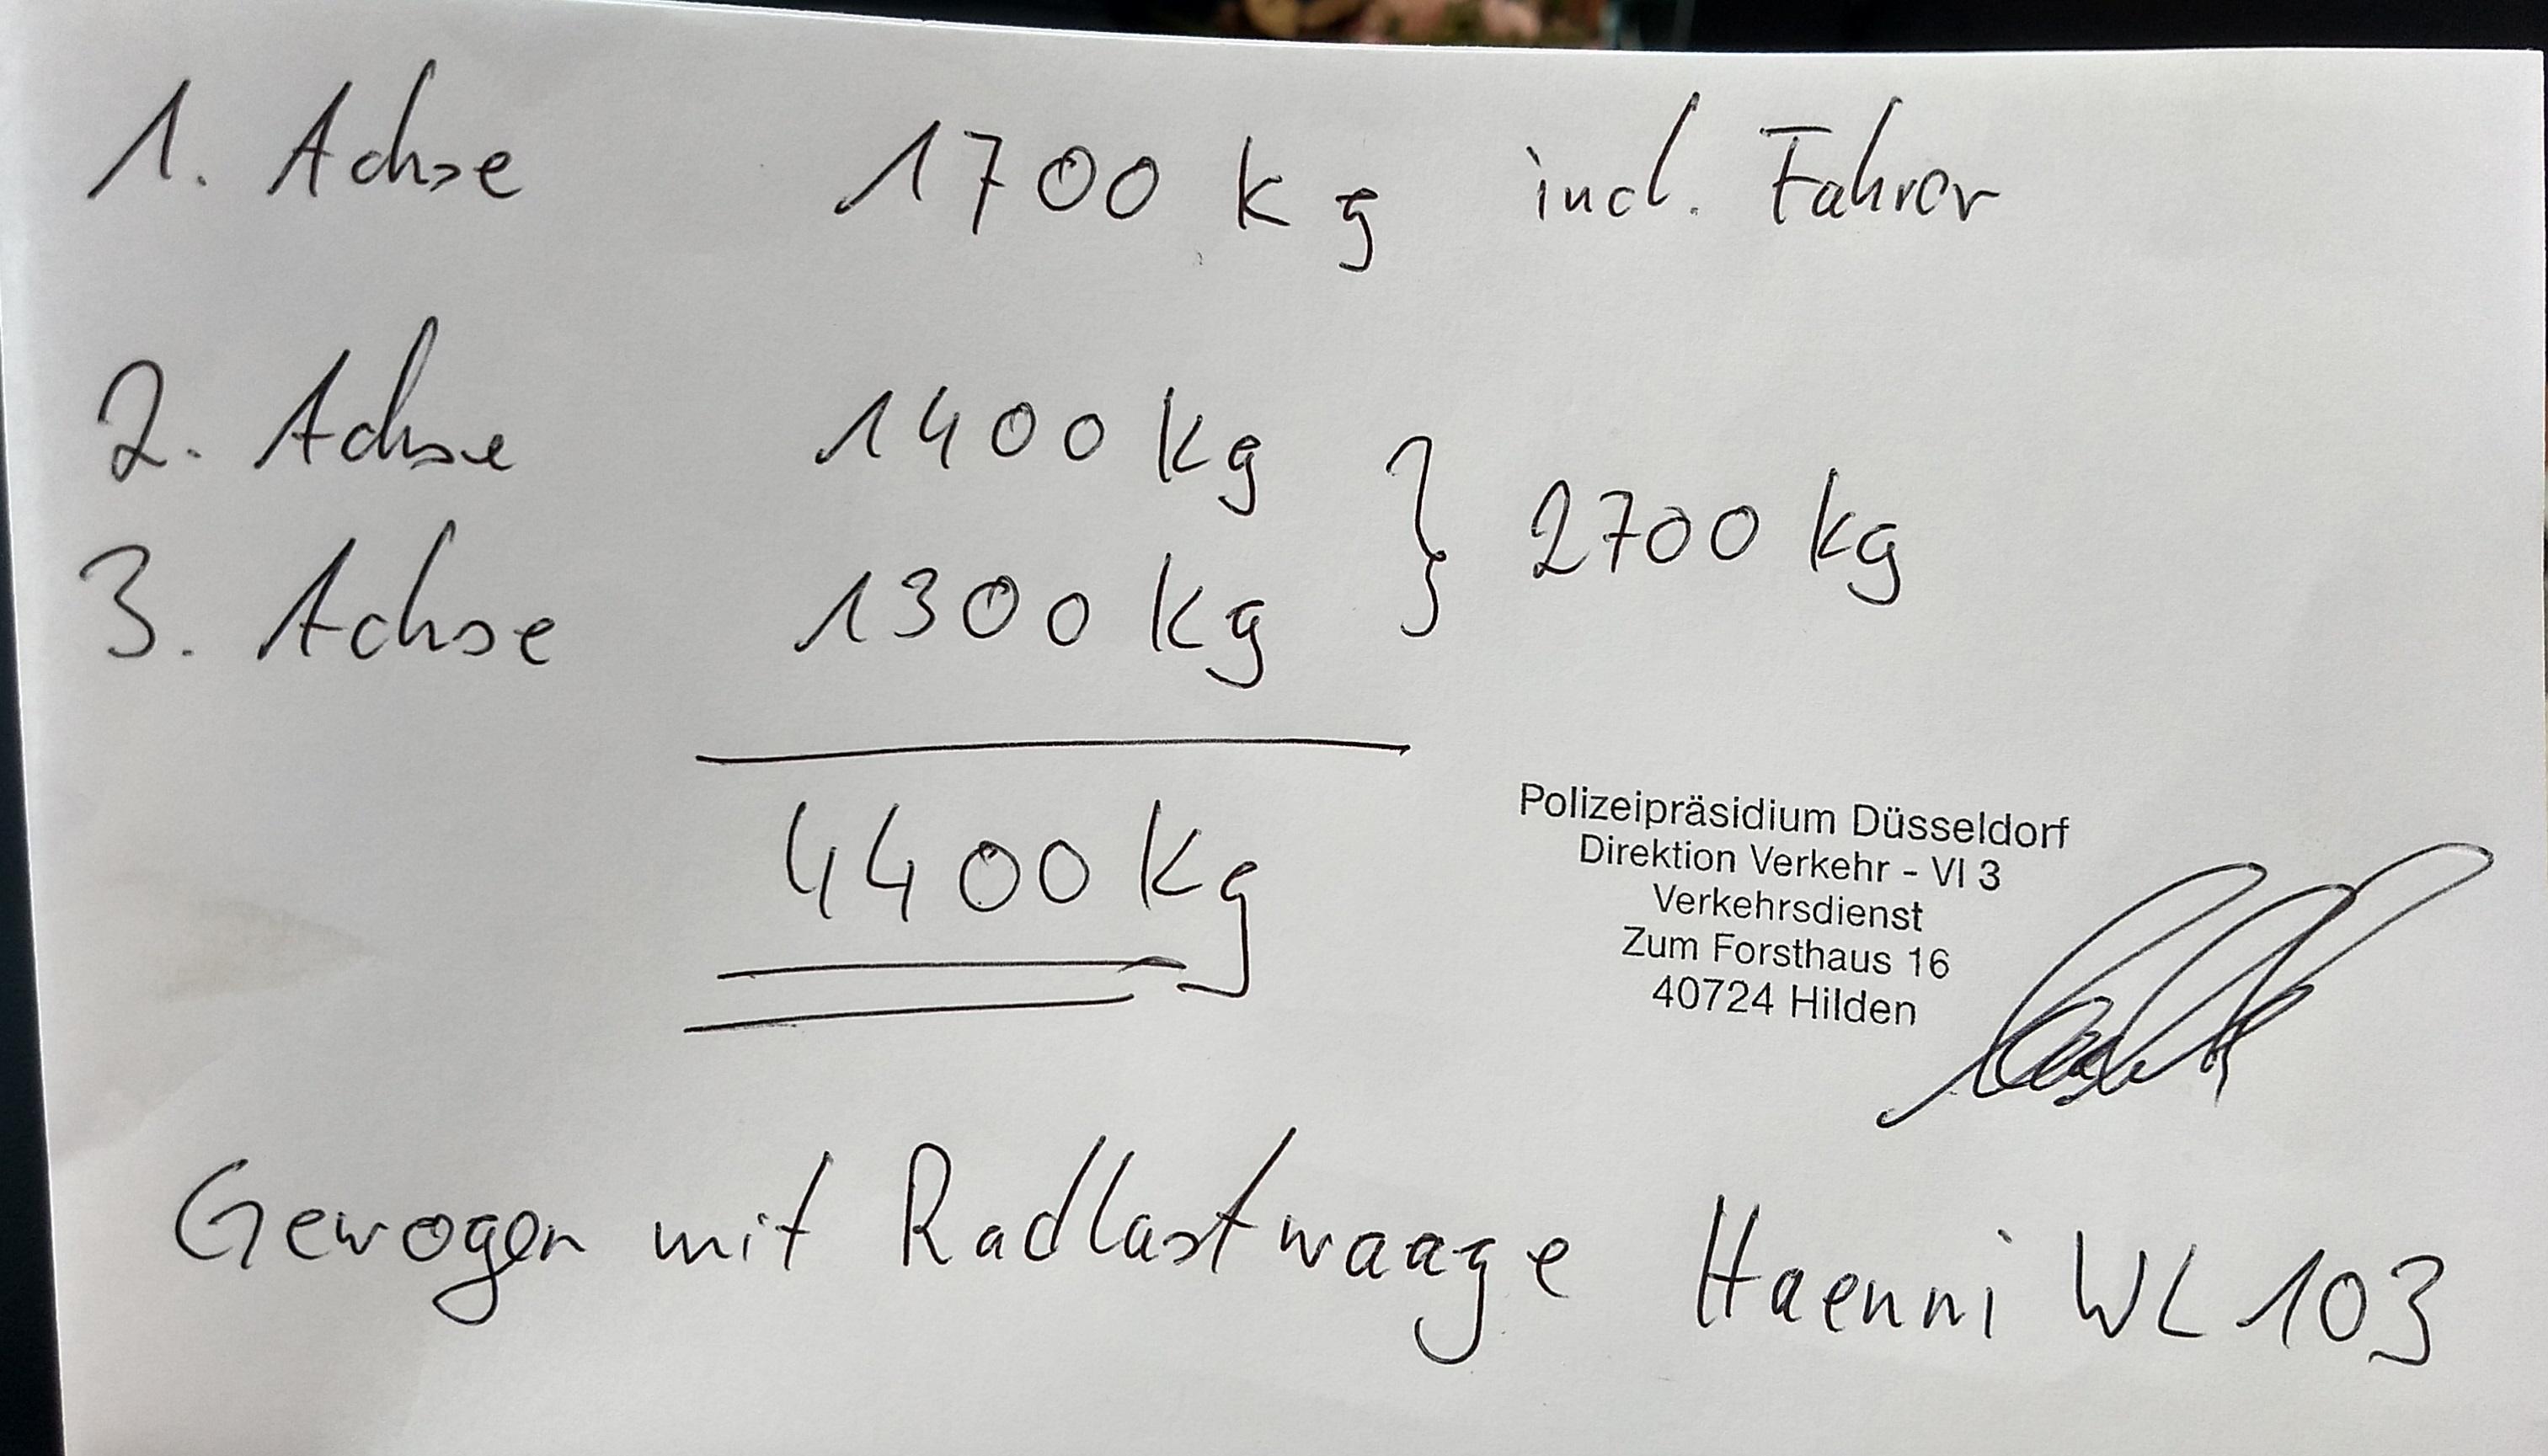 1. Achse 1700 kg incl. Fahrer
2. Achse 1400 kg
} 2700 kg
3. Achse 1300 kg
4400 kg
Polizeipräsidium Düsseldorf
Direktion Verkehr - VI 3
Verkehrsdienst
Zum Forsthaus 16
40724 Hilden
Gewogen mit Radlastwaage Haenni WL 103